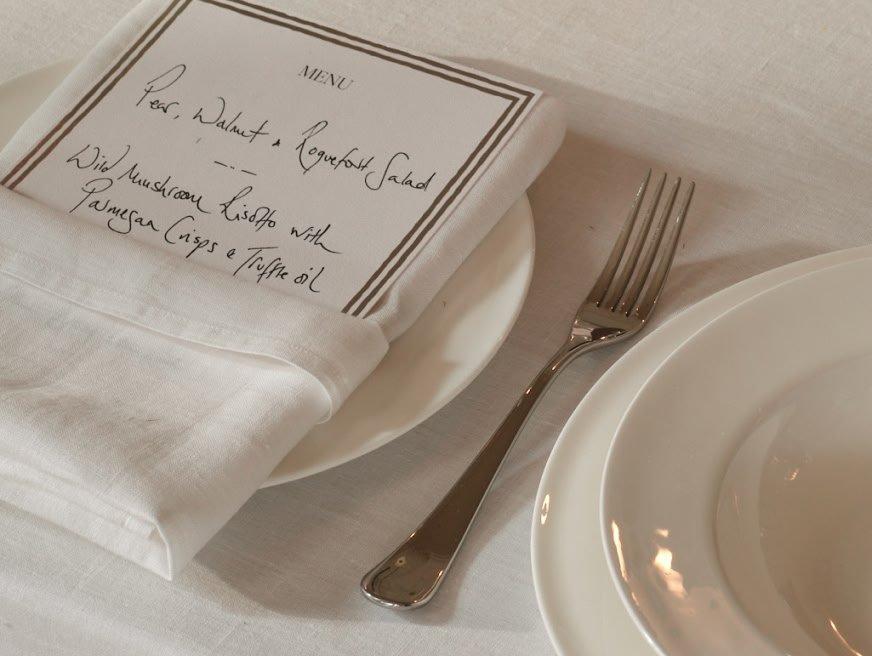 MENU
Pear, Walnut & Roquefort Salad
Wild Mushroom Risotto with
Parmesan Crisps & Truffle oil